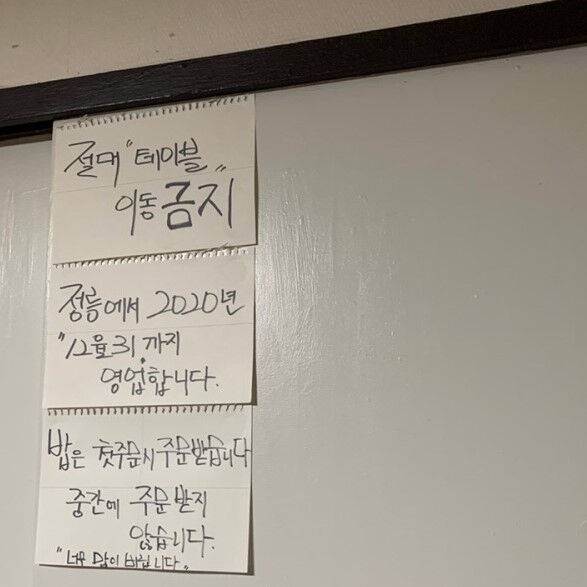 절대 "테이블"
이동 금지
정릉에서 2020년
"12월31"까지
영업합니다.
밥은 첫주문시 주문받습니다
중간에 주문 받지
않습니다.
"너무 많이 바쁩니다"